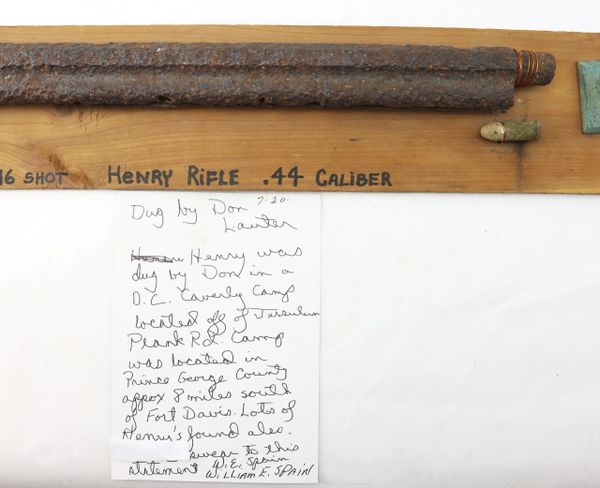 16 SHOT HENRY RIFLE .44 CALIBER
7-20-
Dug by Don
Lauter
Henry was
dug by Don in a
D.C. Caverly Camp
located off of Jerusulum
Plank Rd. Camp
was located in
Prince George County
appox 8 miles south
of Fort Davis. Lots of
Henry's found also.
swear to this
statement W.E. Spain
WILLIAM E. SPAIN